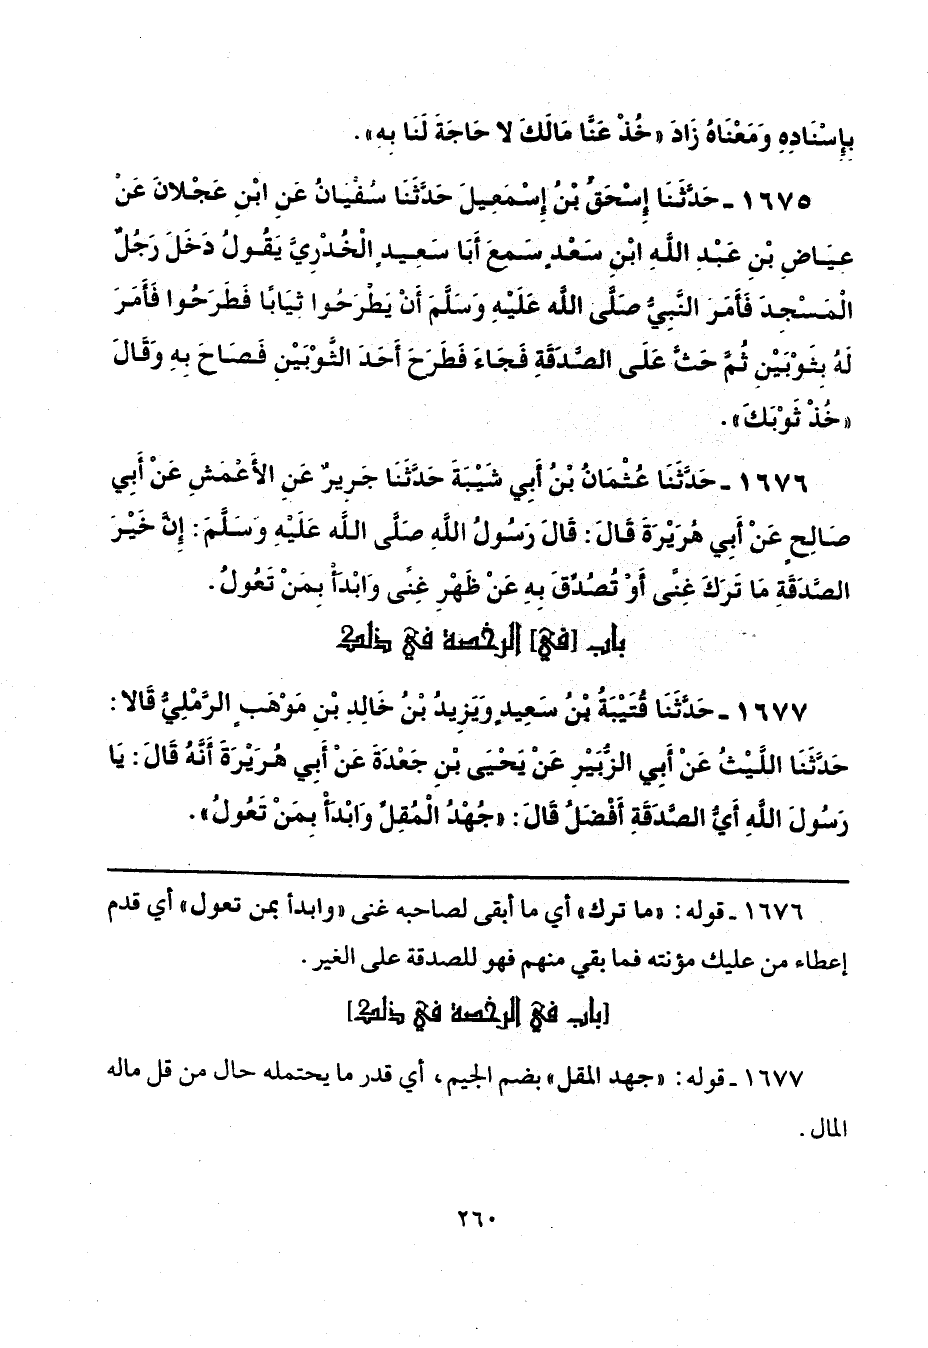 بِإِسْنَادِهِ وَمَعْنَاهُ زَادَ «خُذْ عَنَّا مَالَكَ لا حَاجَةَ لَنَا بِهِ».
١٦٧٥ ـ حَدَّثَنَا إِسْحَقُ بْنُ إِسْمَعِيلَ حَدَّثَنَا سُفْيَانُ عَنِ ابْنِ عَجْلانَ عَنْ
عِيَاضِ بْنِ عَبْدِ اللَّهِ ابْنِ سَعْدٍ سَمِعَ أَبَا سَعِيدٍ الْخُدْرِيَّ يَقُولُ دَخَلَ رَجُلٌ
الْمَسْجِدَ فَأَمَرَ النَّبِيُّ صَلَّى اللَّه عَلَيْهِ وَسَلَّمَ أَنْ يَطْرَحُوا ثِيَابًا فَطَرَحُوا فَأَمَرَ
لَهُ بِثَوْبَيْنِ ثُمَّ حَثَّ عَلَى الصَّدَقَةِ فَجَاءَ فَطَرَحَ أَحَدَ الثَّوْبَيْنِ فَصَاحَ بِهِ وَقَالَ
«خُذْ ثَوْبَكَ».
١٦٧٦ ـ حَدَّثَنَا عُثْمَانُ بْنُ أَبِي شَيْبَةَ حَدَّثَنَا جَرِيرٌ عَنِ الأَعْمَشِ عَنْ أَبِي
صَالِحٍ عَنْ أَبِي هُرَيْرَةَ قَالَ: قَالَ رَسُولُ اللَّهِ صَلَّى اللَّه عَلَيْهِ وَسَلَّمَ: إِنَّ خَيْرَ
الصَّدَقَةِ مَا تَرَكَ غِنًى أَوْ تُصُدِّقَ بِهِ عَنْ ظَهْرِ غِنًى وَابْدَأْ بِمَنْ تَعُولُ.
باب [في] الرخصة في ذلك
١٦٧٧ ـ حَدَّثَنَا قُتَيْبَةُ بْنُ سَعِيدٍ وَيَزِيدُ بْنُ خَالِدِ بْنِ مَوْهَبٍ الرَّمْلِيُّ قَالا:
حَدَّثَنَا اللَّيْثُ عَنْ أَبِي الزُّبَيْرِ عَنْ يَحْيَى بْنِ جَعْدَةَ عَنْ أَبِي هُرَيْرَةَ أَنَّهُ قَالَ: يَا
رَسُولَ اللَّهِ أَيُّ الصَّدَقَةِ أَفْضَلُ قَالَ: «جُهْدُ الْمُقِلِّ وَابْدَأْ بِمَنْ تَعُولُ».
١٦٧٦ ـ قوله: «ما ترك» أي ما أبقى لصاحبه غنى «وابدأ بمن تعول» أي قدم
إعطاء من عليك مؤنته فما بقي منهم فهو للصدقة على الغير.
[باب في الرخصة في ذلك]
١٦٧٧ ـ قوله: «جهد المقل» بضم الجيم، أي قدر ما يحتمله حال من قل ماله
المال.
٢٦٠